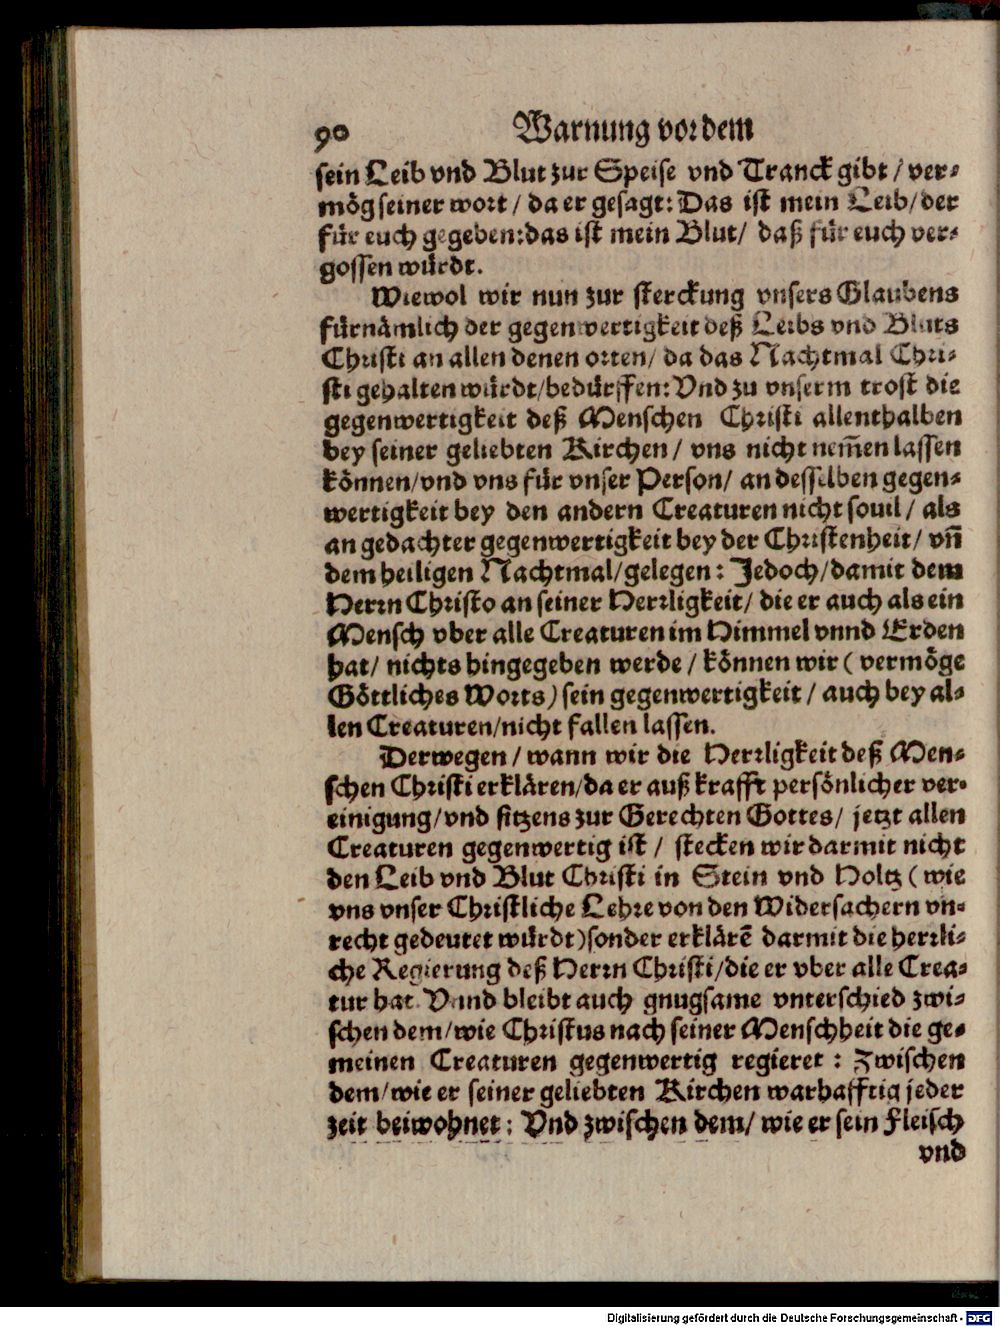 90 Warnung vor dem
sein Leib vnd Blut zur Speise vnd Tranck gibt / ver-
mög seiner wort / da er gesagt: Das ist mein Leib/ der
für euch gegeben: das ist mein Blut/ daß für euch ver-
gossen würdt.
Wiewol wir nun zur sterckung vnsers Glaubens
fürnämlich der gegenwertigkeit deß Leibs vnd Bluts
Christi an allen denen orten/ da das Nachtmal Chri-
sti gehalten würdt/ bedürffen: Vnd zu vnserm trost die
gegenwertigkeit deß Menschen Christi allenthalben
bey seiner geliebten Kirchen / vns nicht nem̃en lassen
können/ vnd vns für vnser Person/ an desselben gegen-
wertigkeit bey den andern Creaturen nicht souil / als
an gedachter gegenwertigkeit bey der Christenheit/ vñ
dem heiligen Nachtmal/ gelegen: Jedoch/ damit dem
Herrn Christo an seiner Herrligkeit/ die er auch als ein
Mensch vber alle Creaturen im Himmel vnnd Erden
hat/ nichts hingegeben werde / können wir ( vermöge
Göttliches Worts) sein gegenwertigkeit / auch bey al-
len Creaturen/ nicht fallen lassen.
Derwegen / wann wir die Herrligkeit deß Men-
schen Christi erklären/ da er auß krafft persönlicher ver-
einigung/ vnd sitzens zur Gerechten Gottes/ jetzt allen
Creaturen gegenwertig ist / stecken wir darmit nicht
den Leib vnd Blut Christi in Stein vnd Holtz ( wie
vns vnser Christliche Lehre von den Widersachern vn-
recht gedeutet würdt) sonder erklärē darmit die herrli-
che Regierung deß Herrn Christi/ die er vber alle Crea-
tur hat. Vnnd bleibt auch gnugsame vnterschied zwi-
schen dem/ wie Christus nach seiner Menschheit die ge-
meinen Creaturen gegenwertig regieret : Zwischen
dem/ wie er seiner geliebten Kirchen warhafftig jeder
zeit beiwohnet: Vnd zwischen dem/ wie er sein Fleisch
vnd
Digitalisierung gefördert durch die Deutsche Forschungsgemeinschaft - DFG